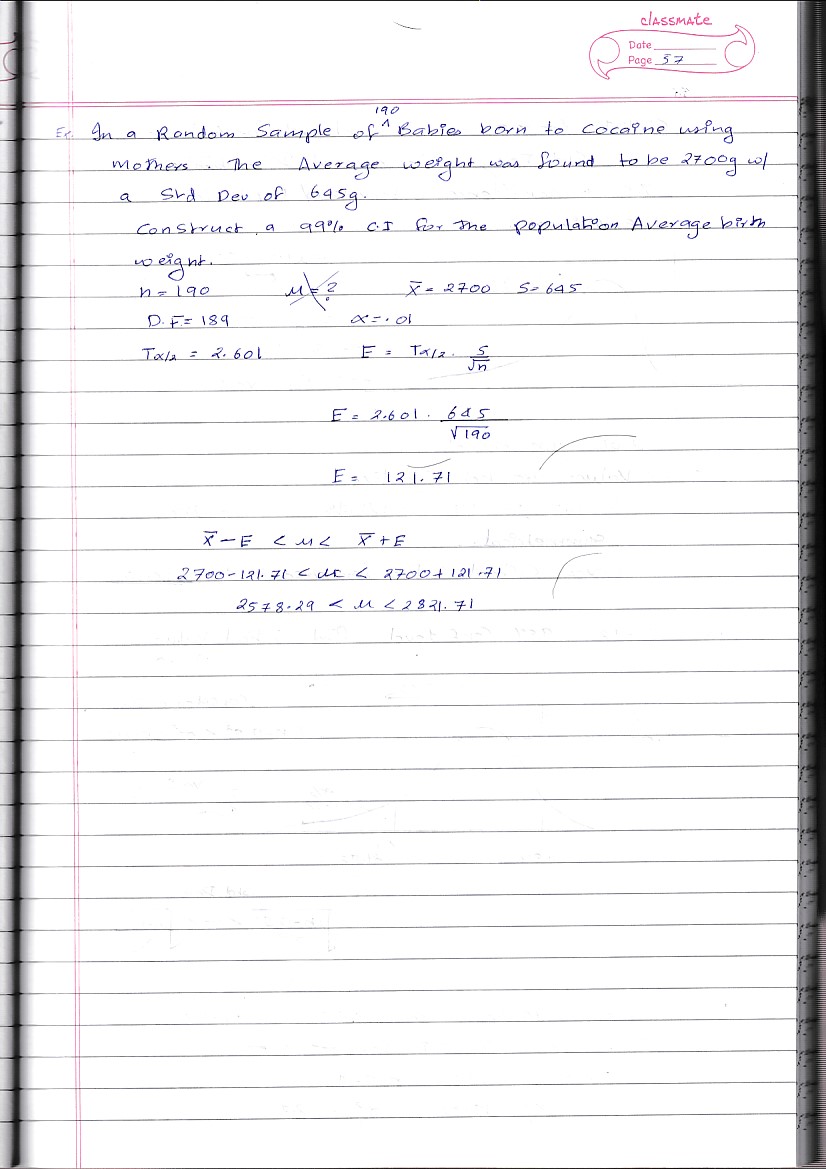 classmate
Date
Page 57
190
Ex. In a Random Sample of ^ Babies born to Cocaine using
Mothers. The Average weight was found to be 2700g w/
a Std Dev of 645g.
Construct a 99% C.I for the population Average birth
weight.
n = 190 μ = ? x̄ = 2700 S = 645
D.F. = 189 α = .01
Tα/2 = 2.601 E = Tα/2 . S/√n
E = 2.601 . 645/√190
E = 121.71
x̄ - E < μ < x̄ + E
2700 - 121.71 < μ < 2700 + 121.71
2578.29 < μ < 2821.71